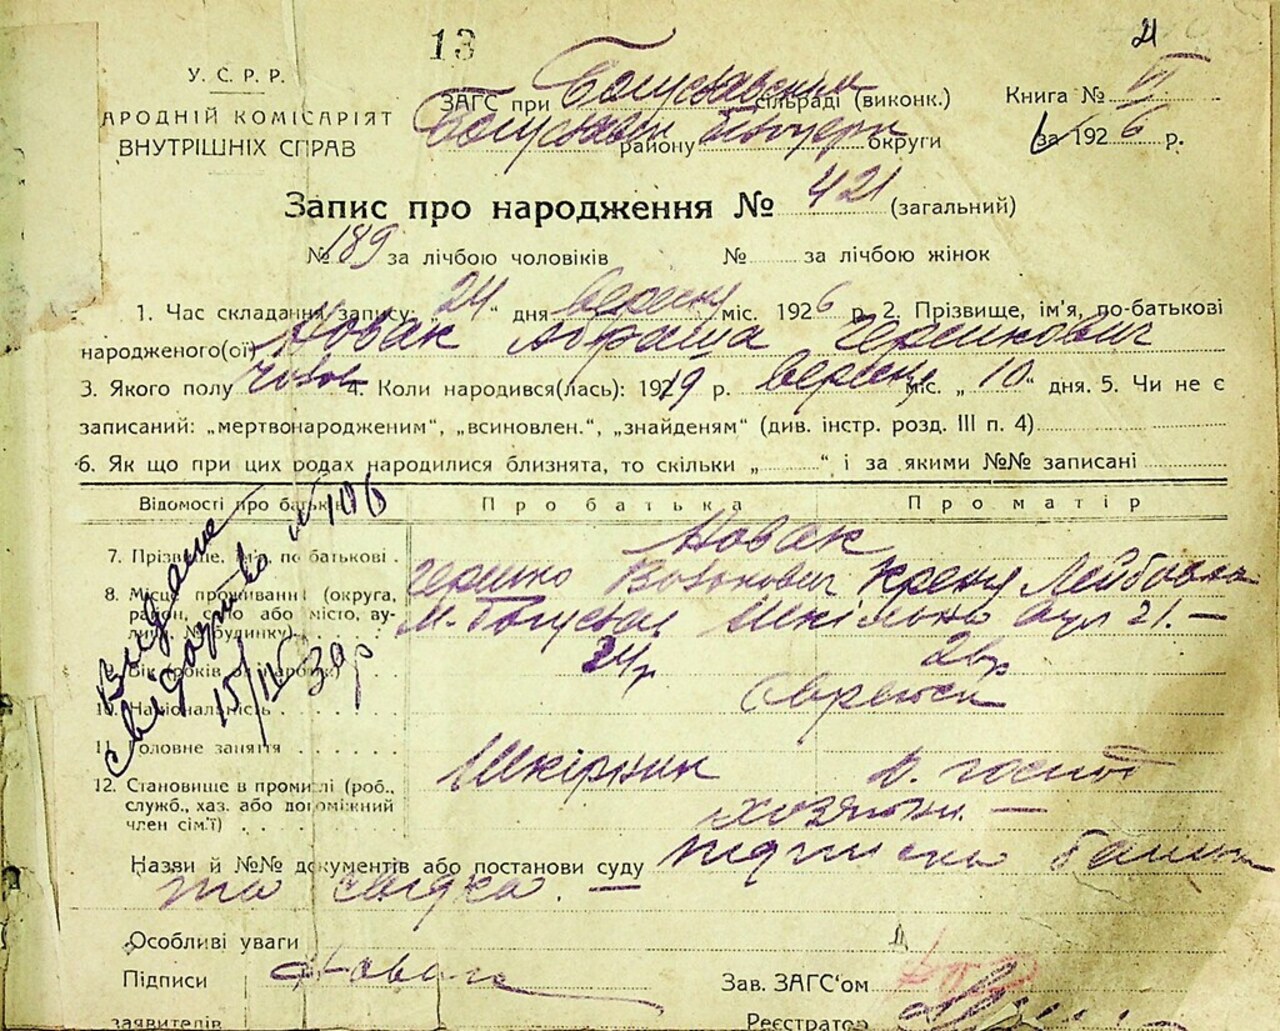 13
21
У. С. Р. Р.
АРОДНІЙ КОМІСАРІЯТ
ВНУТРІШНІХ СПРАВ
ЗАГС при Богуславським сільраді (виконк.)
Богуславськ району округи
Книга № VI
за 1926 р.
Запис про народження № 421 (загальний)
№ 189 за лічбою чоловіків № за лічбою жінок
1. Час складання запису: „24“ дня вересня міс. 1926 р. 2. Прізвище, ім'я, по-батькові
народженого(ої) Новак Абраша Гершкович
3. Якого полу чолов 4. Коли народився(лась): 1919 р. вересня міс. „10“ дня. 5. Чи не є
записаний: „мертвонародженим“, „всиновлен.“, „знайденям“ (див. інстр. розд. III п. 4)
6. Як що при цих родах народилися близнята, то скільки „ “ і за якими №№ записані
Відомості про батьків
Про батька
Про матір
7. Прізвище, ім'я, по батькові
Новак
Гершко Волькович Крейня Лейбовна
8. Місце проживання (округа,
район, село або місто, ву-
лиця, № будинку).
М. Богуслав Шкільна вул 21. —
9. Вік (років од народж.)
34р
10. Національність
Євреюск
11. Головне заняття
Шкірник
д. господ
12. Становище в промислі (роб.,
служб., хаз. або допоміжний
член сім'ї)
хозяїни. —
Видане
свідоцтво № 106
15/IV 30 р
Назви й №№ документів або постанови суду підписка батька
та свідка. —
Особливі уваги
Підписи
Новак
заявителів
Зав. ЗАГС'ом
Реєстратор